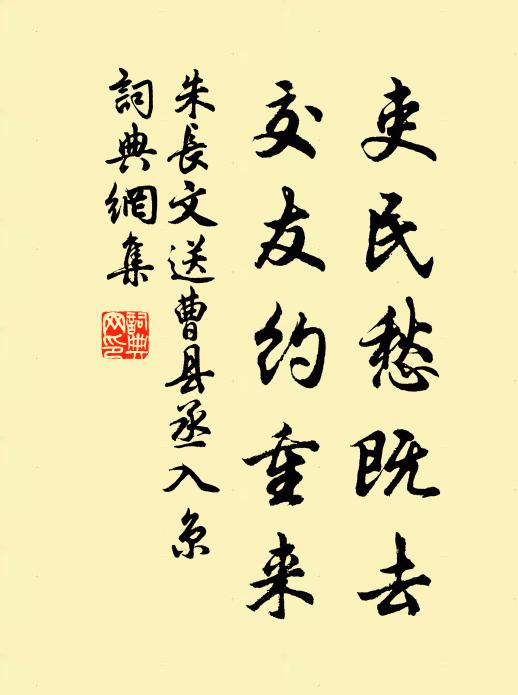 吏民愁既去
交友约重来
朱長文送曹县丞入京
詞典網集
詞典
网印